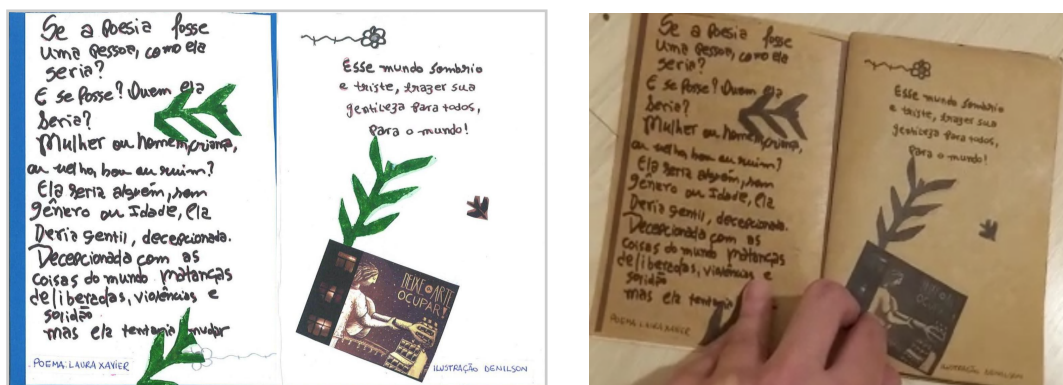 Se a Poesia fosse
uma Pessoa, como ela
seria?
E se fosse? Quem ela
Seria?
Mulher ou homem, criança,
ou velho, bom ou ruim?
Ela seria alguém, sem
gênero ou Idade, Ela
Seria gentil, decepcionada.
Decepcionada com as
coisas do mundo matanças
deliberadas, violências e
solidão
mas ela tentaria mudar
POEMA: LAURA XAVIER
Esse mundo sombrio
e triste, trazer sua
gentileza para todos,
Para o mundo!
DEIXE A ARTE
OCUPAR!
ILUSTRAÇÃO DENILSON
Se a Poesia fosse
uma Pessoa, como ela
seria?
E se fosse? Quem ela
Seria?
Mulher ou homem, criança,
ou velho, bom ou ruim?
Ela seria alguém, sem
gênero ou Idade, Ela
Seria gentil, decepcionada.
Decepcionada com as
coisas do mundo matanças
deliberadas, violências e
solidão
mas ela tentaria
POEMA: LAURA XAVIER
Esse mundo sombrio
e triste, trazer sua
gentileza para todos,
Para o mundo!
OCUPAR!
ILUSTRAÇÃO DENILSON